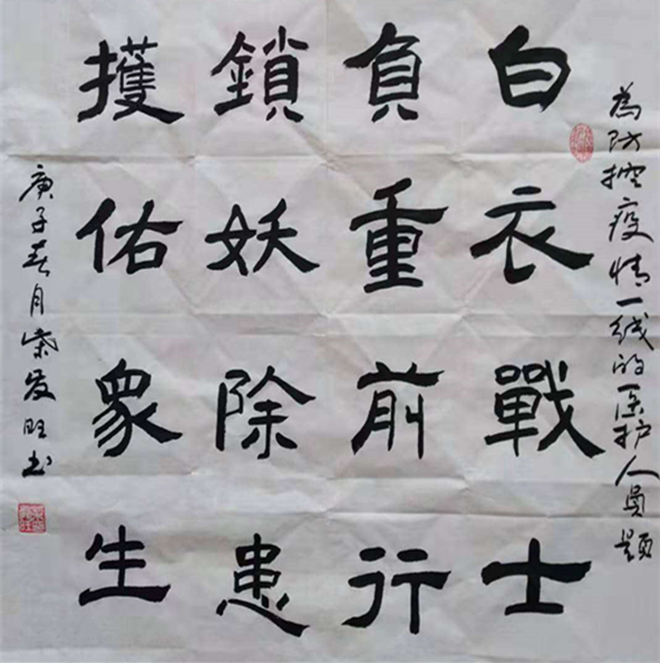 為防控疫情一线的医护人員题
白衣戰士
負重前行
鎖妖除患
擭佑衆生
庚子春月柴发旺书